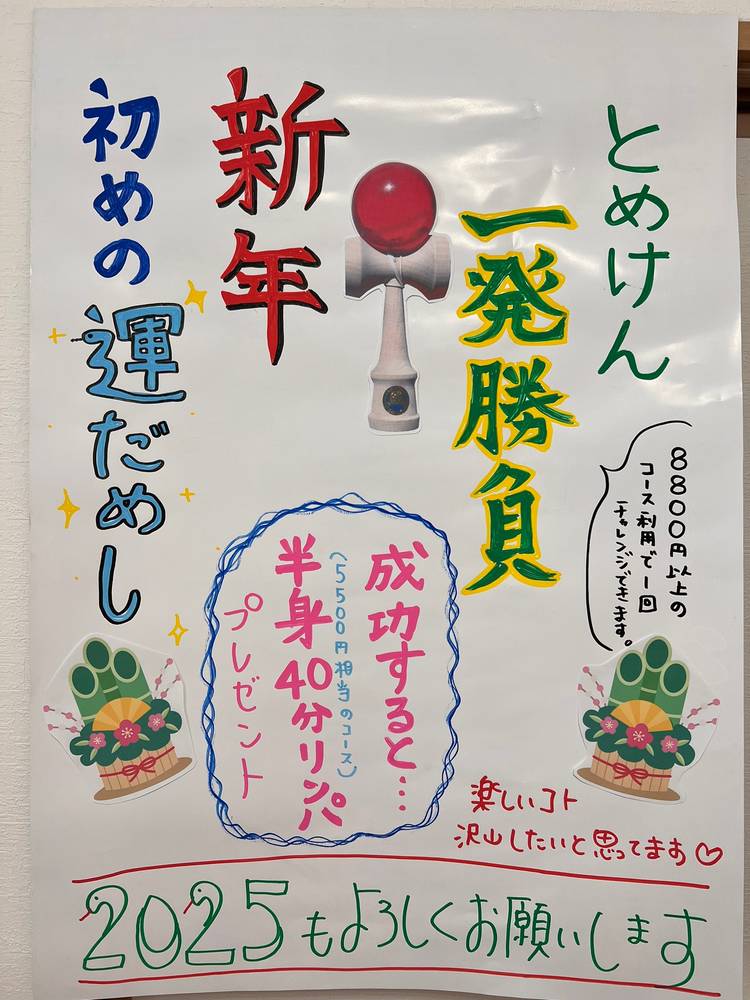 とめけん
一発勝負
新年
初めの
運だめし
8800円以上の
コース利用で1回
チャレンジできます。
成功すると…
(5500円相当のコース)
半身40分リンパ
プレゼント
楽しいコト
沢山したいと思ってます♡
2025もよろしくお願いします